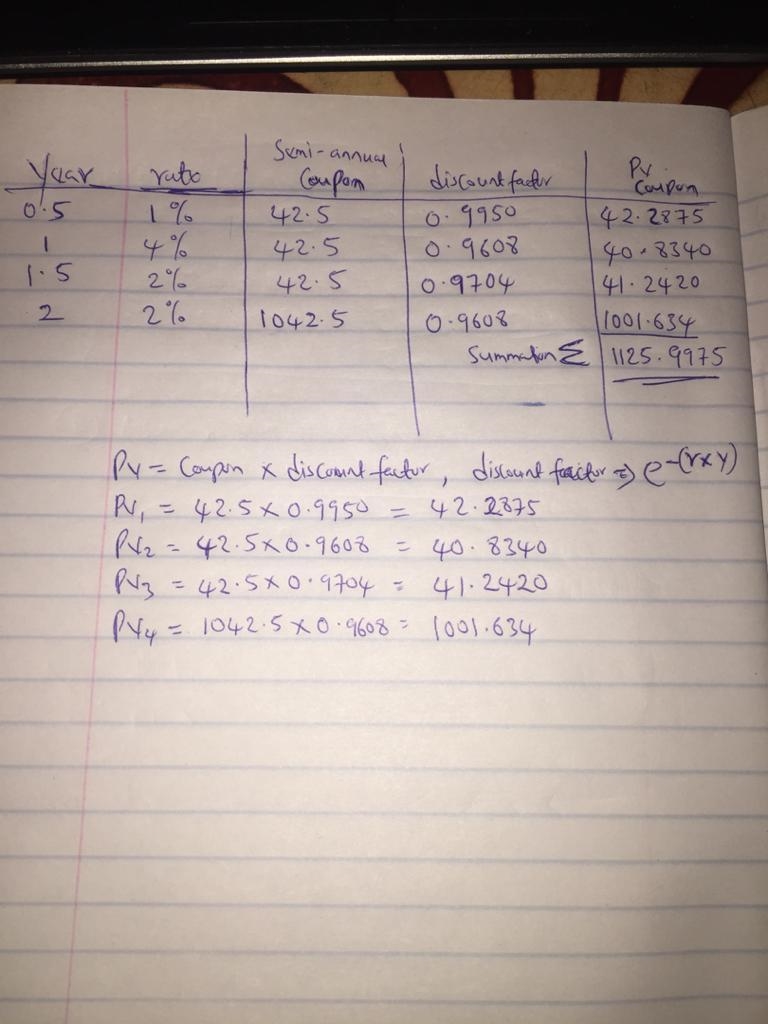 Year rate Semi-annual Coupon discount factor Pv Coupon
0.5 1% 42.5 0.9950 42.2875
1 4% 42.5 0.9608 40.8340
1.5 2% 42.5 0.9704 41.2420
2 2% 1042.5 0.9608 1001.634
Summation Σ 1125.9975
PV = Coupon x discount factor, discount factor ⇒ e-(rxy)
PV1 = 42.5 x 0.9950 = 42.2875
PV2 = 42.5 x 0.9608 = 40.8340
PV3 = 42.5 x 0.9704 = 41.2420
PV4 = 1042.5 x 0.9608 = 1001.634